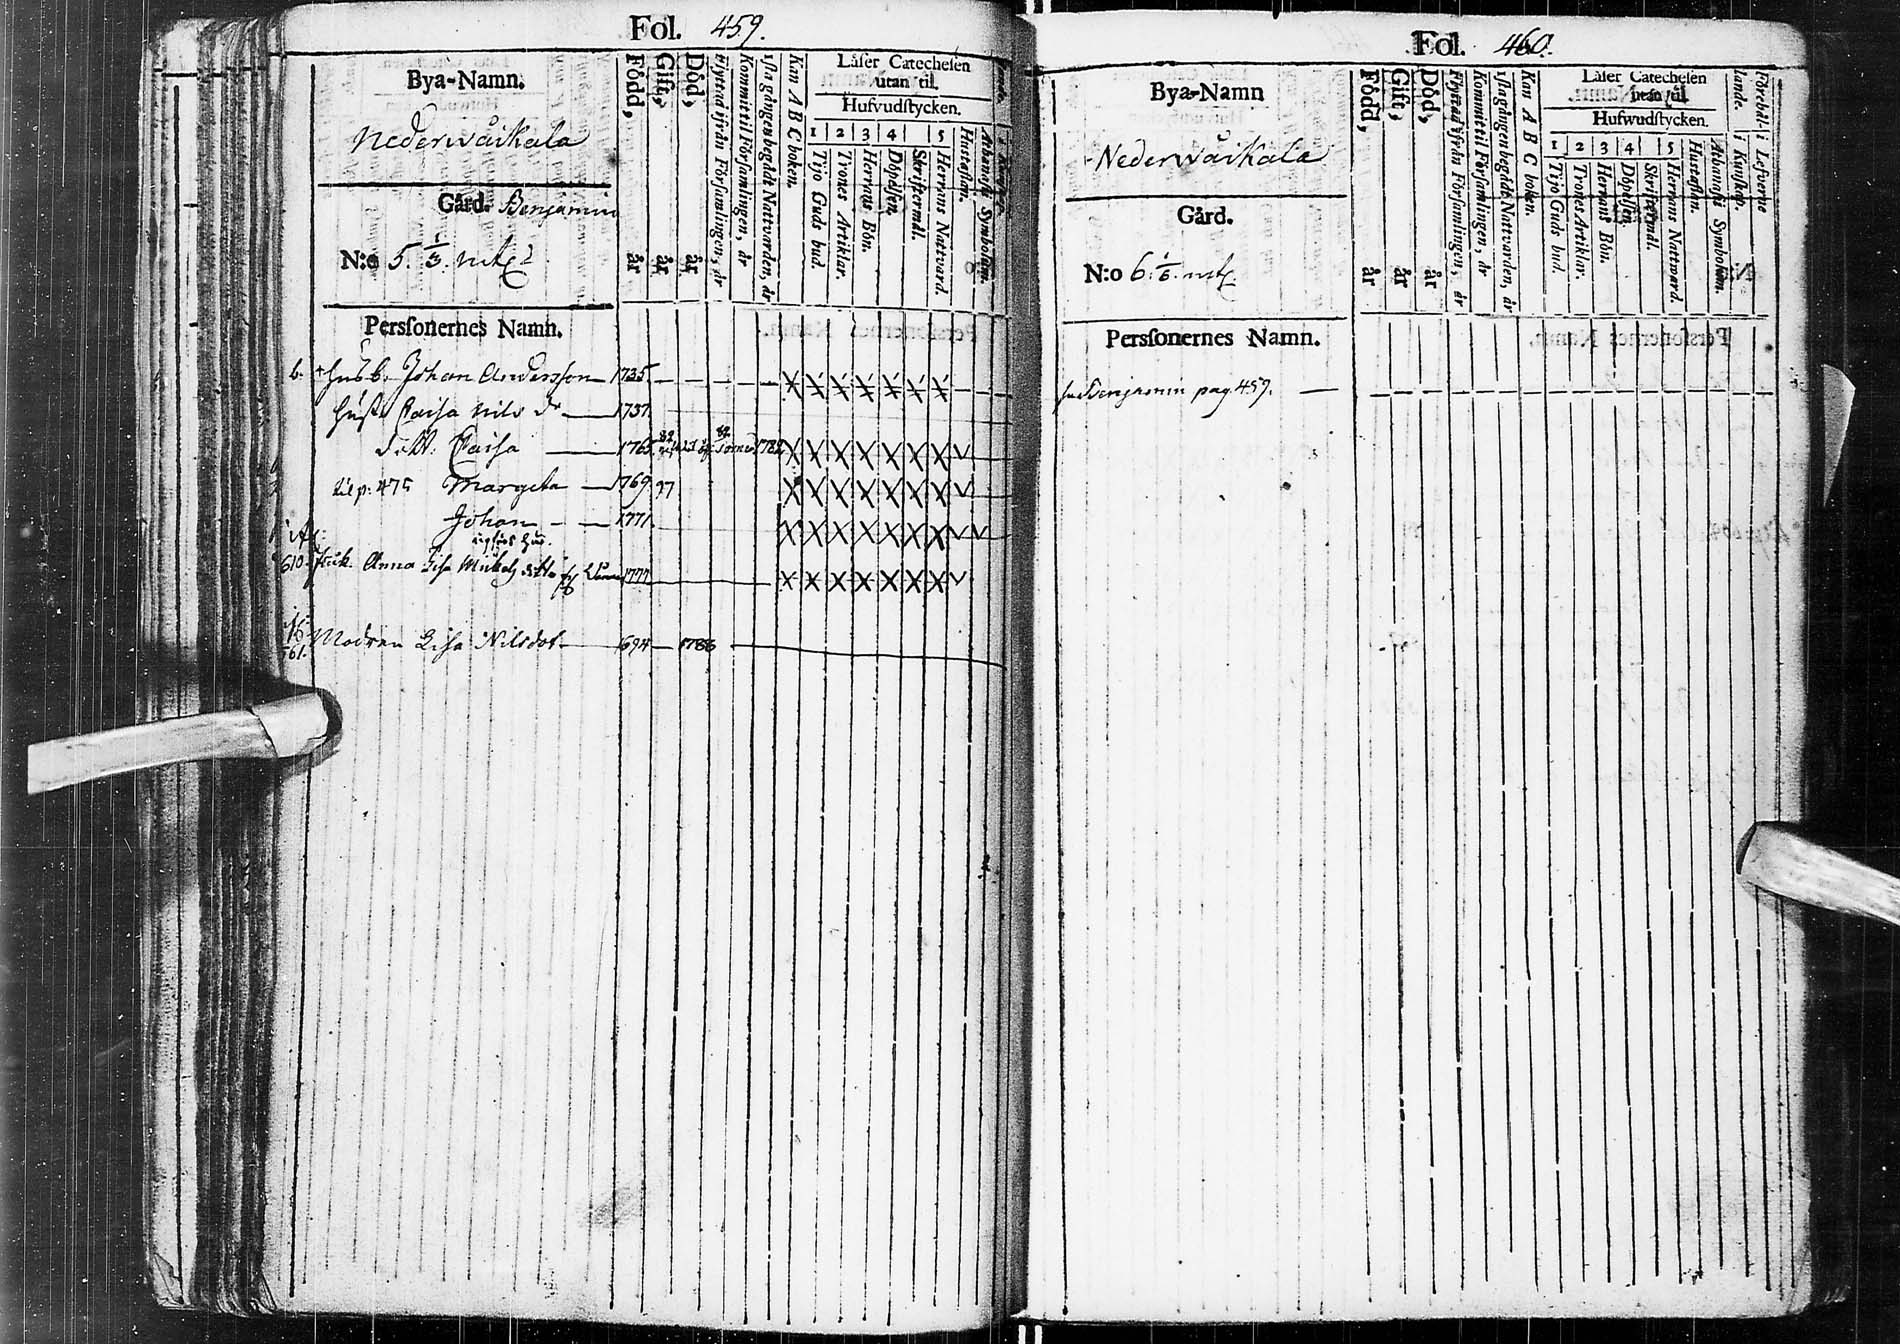 Fol. 459.
Bya-Namn.
Nederwäikala
Gård. Benjamin
N:o 5. 1/3. mtl
Född, år
Gift, år
Död, år
Flyttad ifrån Församlingen, år
Kommit til Församlingen, år
1sta gången begådt Nattvarden, år
Kan A B C boken.
Låser Catechesen
utan til.
Hufvudstycken.
1 2 3 4 5
Tijo Guds bud.
Trones Artiklar.
Herrans Bön.
Döpelsen.
Skriftermål.
Herrans Nattvard.
Hustaflan.
Athanasii Symbolum.
Personernes Namn.
b. + Husb. Johan Andersson 1735.
Hust. Caisa Nils dr 1737.
Dott. Caisa 1765. 1782
til p. 475 Margeta 1769. 97
Johan 1771.
610. Anna Lisa 1777
561. Modren Lisa Nilsdot. 1694 1786
Fol. 460.
Bya-Namn
Nederwäikala
Gård.
N:o 6. 1/6. mtl
Född, år
Gift, år
Död, år
Flyttad ifrån Församlingen, år
Kommit til Församlingen, år
1sta gången begådt Nattvarden, år
Kan A B C boken.
Låser Catechesen
utan til.
Hufwudstycken.
1 2 3 4 5
Tijo Guds bud.
Trones Artiklar.
Herrans Bön.
Döpelsen.
Skriftermål.
Herrans Nattward.
Hustaflan.
Athanasii Symbolum.
i Kunskap.
i Lefverne
Personernes Namn.
Benjamin pag. 459.